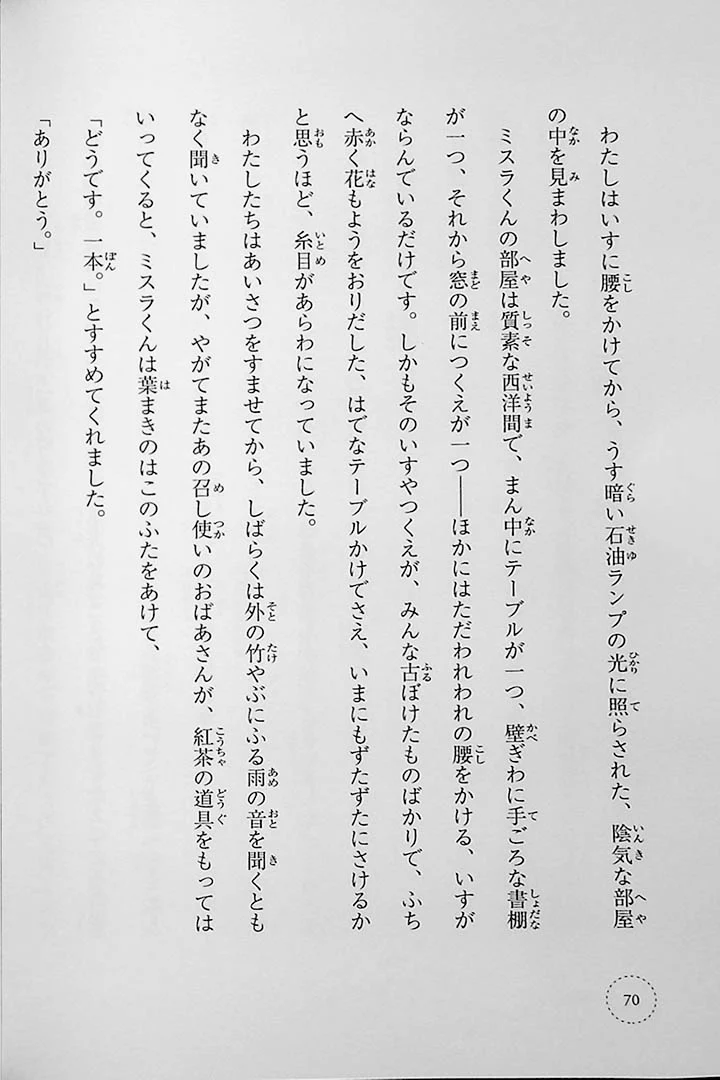 わたしはいすに腰をかけてから、うす暗い石油ランプの光に照らされた、陰気な部屋
の中を見まわしました。
ミスラくんの部屋は質素な西洋間で、まん中にテーブルが一つ、壁ぎわに手ごろな書棚
が一つ、それから窓の前につくえが一つ――ほかにはただわれわれの腰をかける、いすが
ならんでいるだけです。しかもそのいすやつくえが、みんな古ぼけたものばかりで、ふち
へ赤く花もようをおりだした、はでなテーブルかけでさえ、いまにもずたずたにさけるか
と思うほど、糸目があらわになっていました。
わたしたちはあいさつをすませてから、しばらくは外の竹やぶにふる雨の音を聞くとも
なく聞いていましたが、やがてまたあの召し使いのおばあさんが、紅茶の道具をもっては
いってくると、ミスラくんは葉まきのはこのふたをあけて、
「どうです。一本。」とすすめてくれました。
「ありがとう。」
70